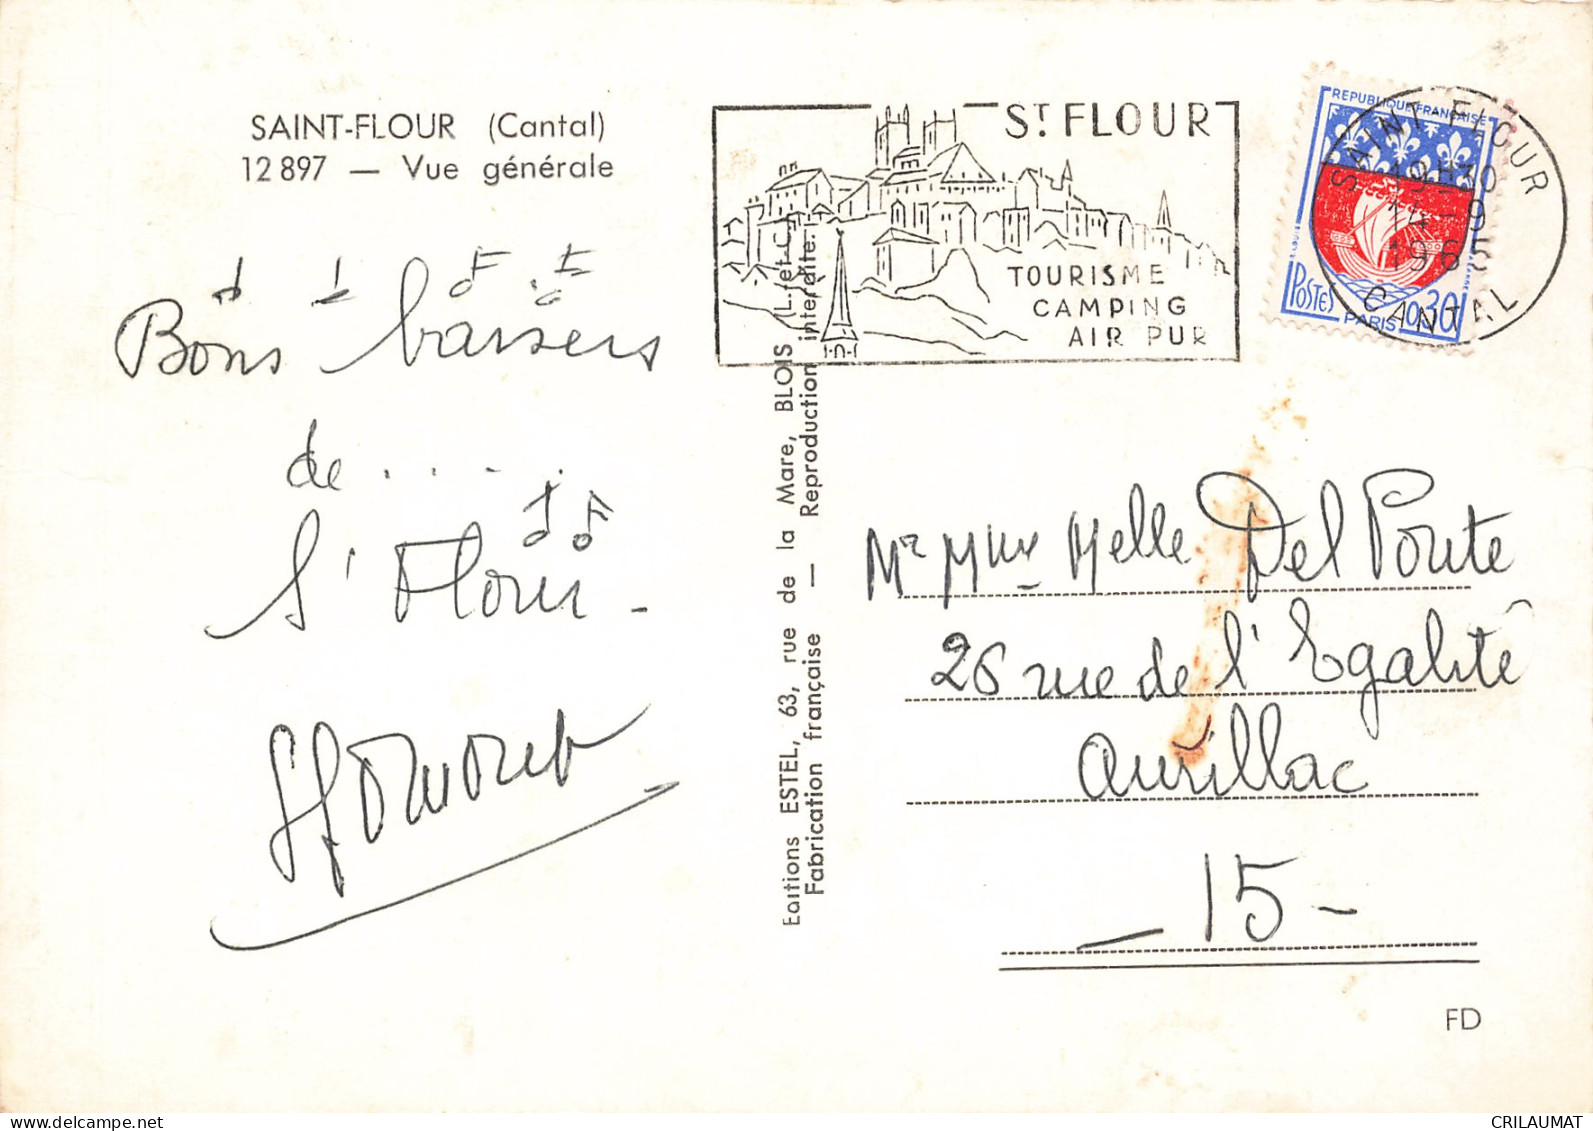 SAINT-FLOUR (Cantal)
12 897 — Vue générale
Bons baisers
de . . . . .
St Flour -
Editions ESTEL, 63, rue de la Mare, BLOIS (L.-et-C.)
Fabrication française — Reproduction interdite.
ST FLOUR
TOURISME
CAMPING
AIR PUR
REPUBLIQUE FRANÇAISE
POSTES
PARIS
0,30
SAINT-FLOUR
19H30
14-9
1965
CANTAL
Mr Mme Melle Del Ponte
26 rue de l'Egalité
Aurillac
- 15 -
FD
CRILAUMAT